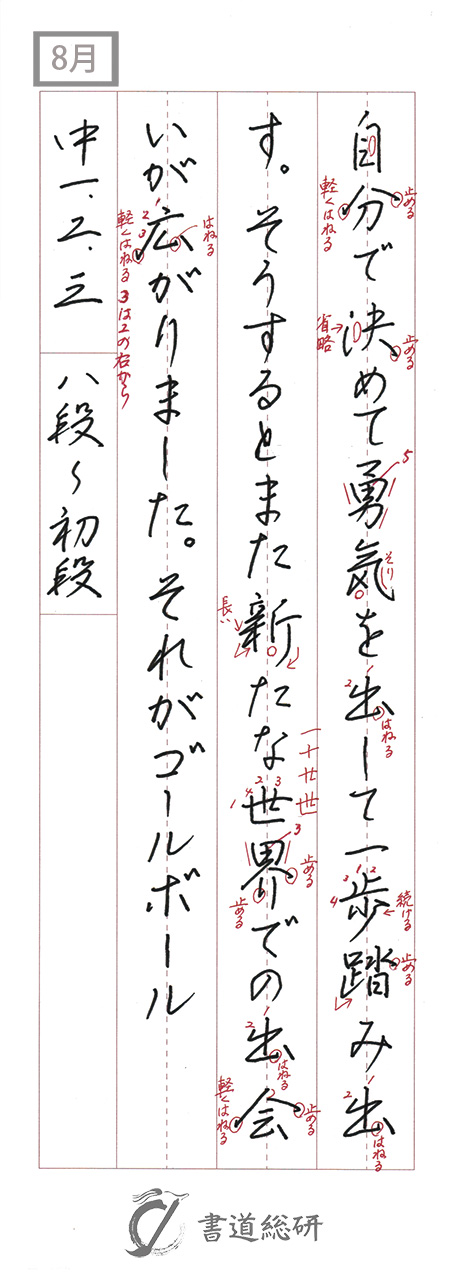 8月
自分で決めて勇気を出して一歩踏み出
す。そうするとまた新たな世界での出会
いが広がりました。それがゴールボール
中一、二、三
八段〜初段
止める
軽くはねる
省略
止める
5
そり
1
2
はねる
1
2
3
4
続ける
止める
1
2
はねる
長い
一十廿世
1
2
3
4
3
止める
止める
1
2
はねる
2
止める
軽くはねる
1
2
3
はねる
軽くはねる
3は2の右から
書道総研